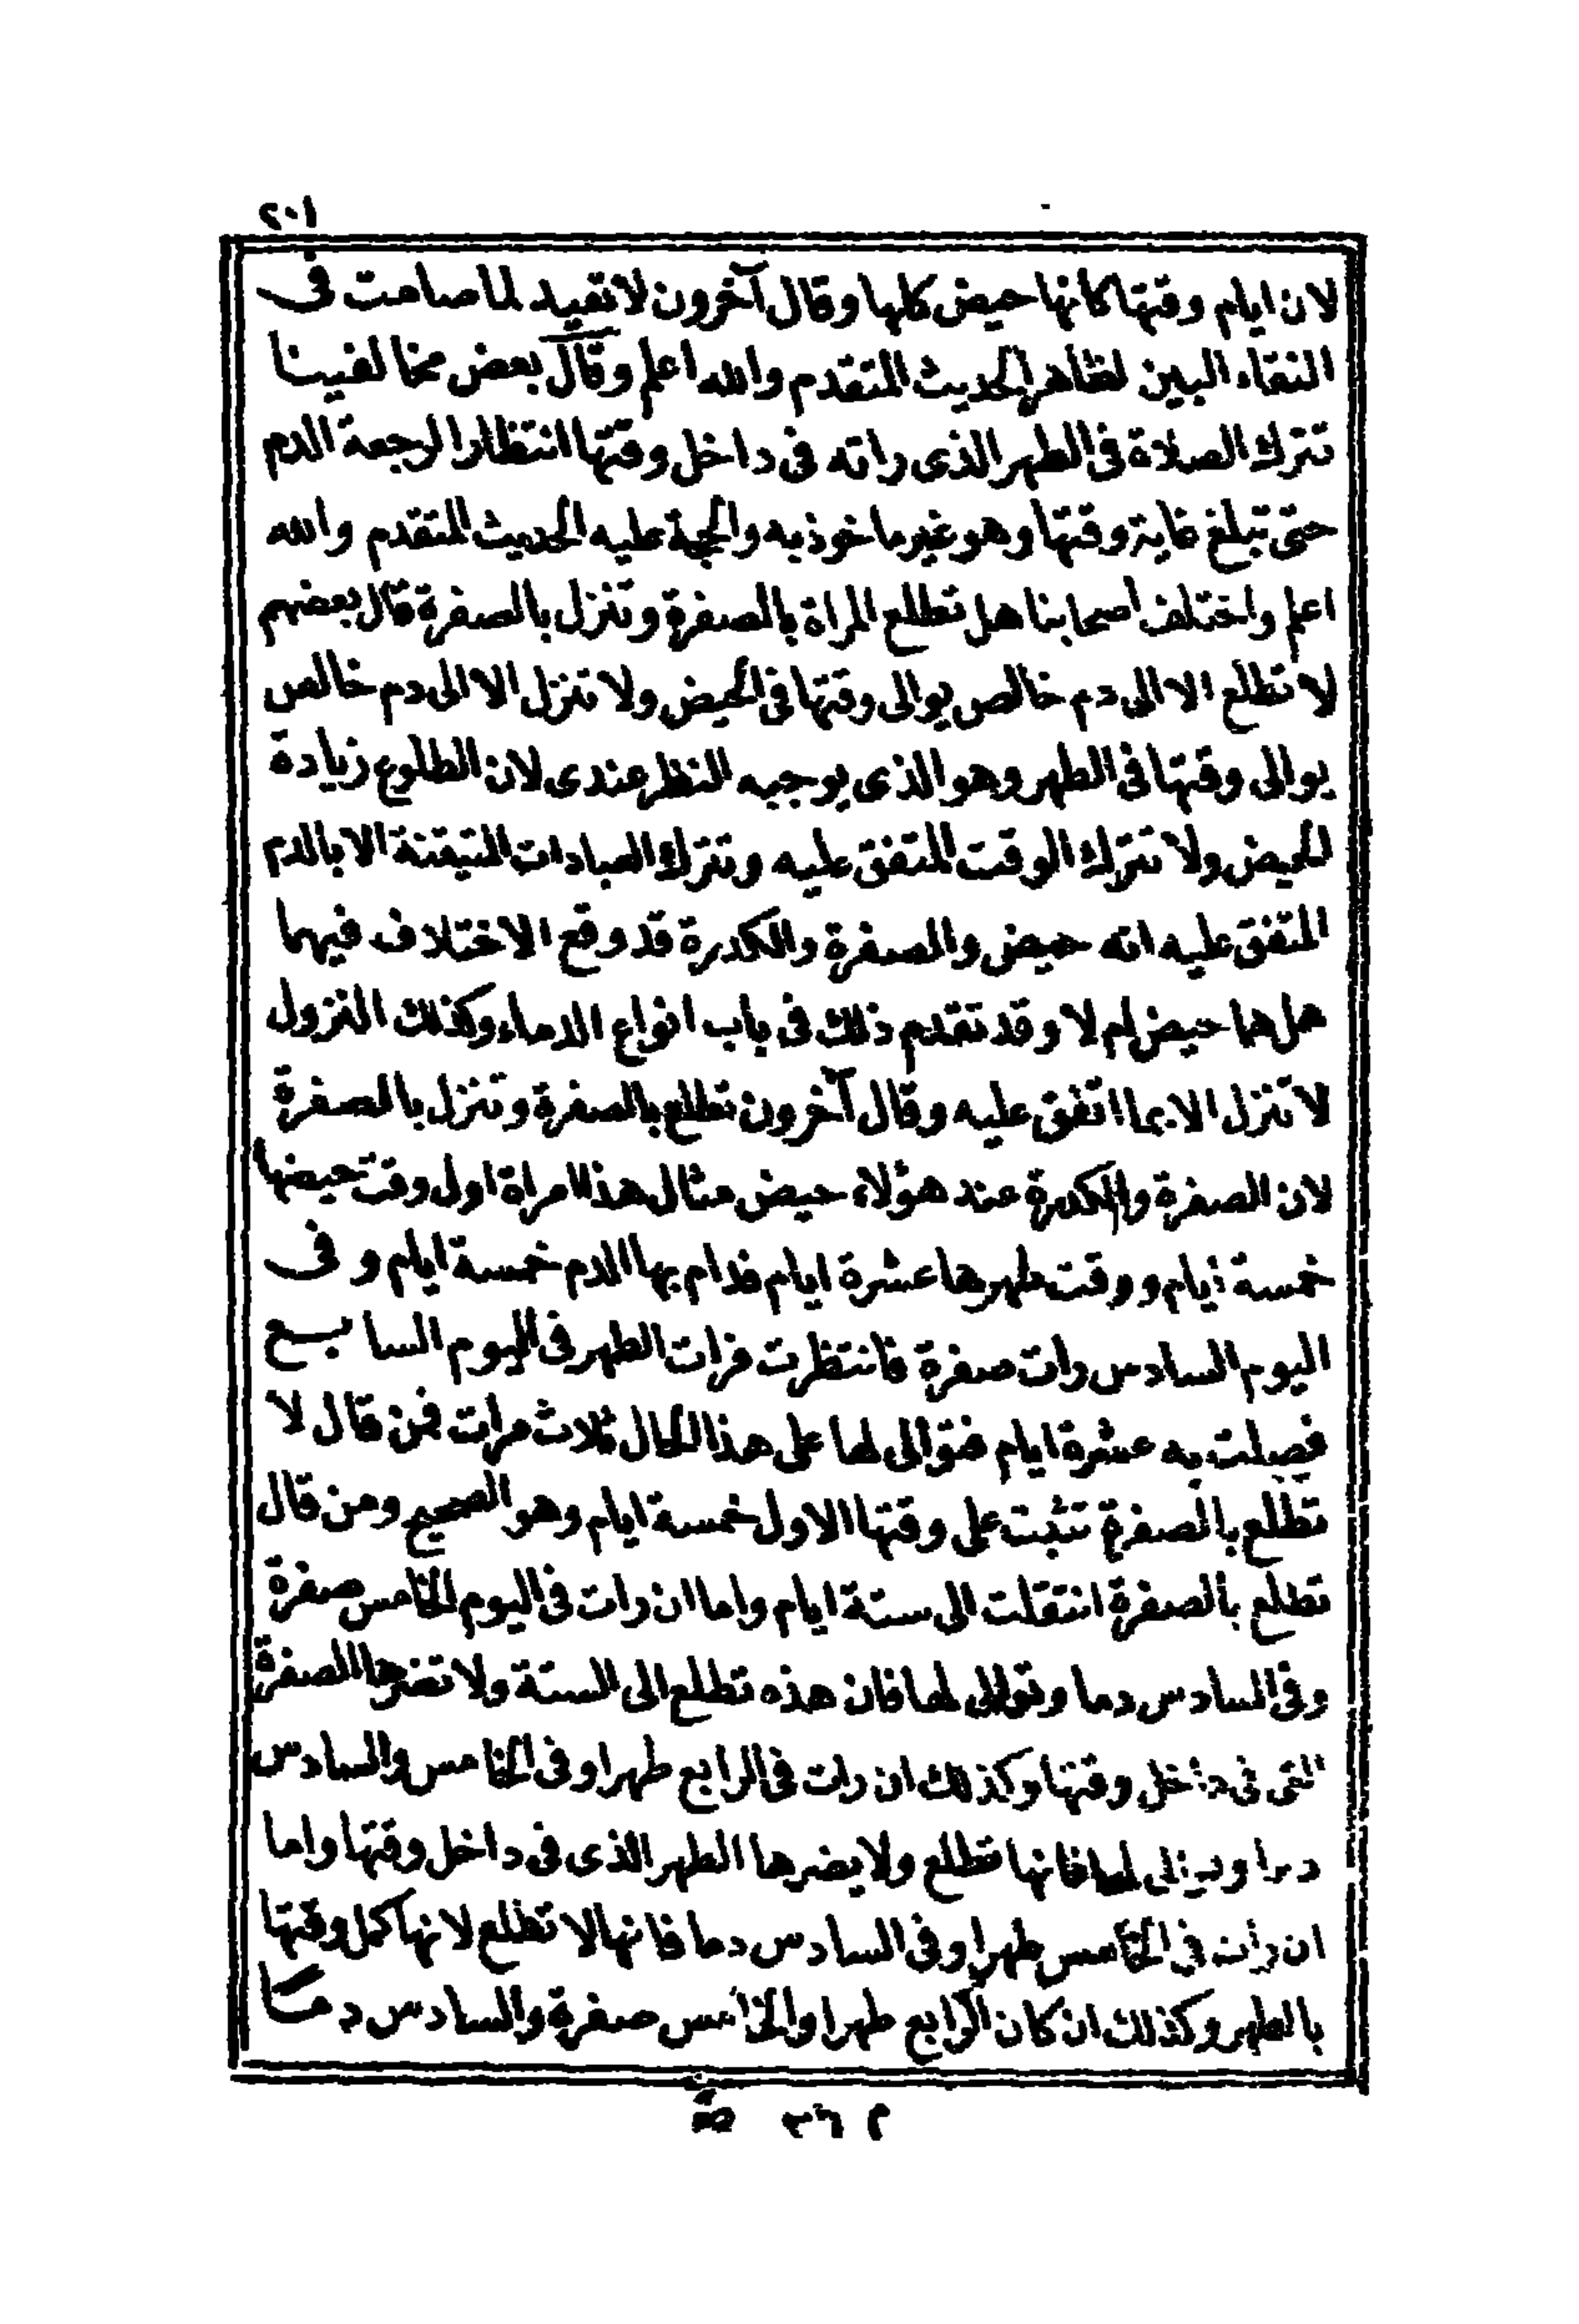 ٢٠١
لان ايام وقتها كانها حيض كلها وقال آخرون لا تعيد لما صامت فى
النقاء البين لظاهر الحديث المتقدم والله اعلم وقال بعض مخالفينا
تترك الصلاة فى الطهر الذى راته فى داخل وقتها انتظارا لرجعة الدم
حتى تبلغ غاية وقتها وهو غير ماخوذ به والحجة عليه الحديث المتقدم والله
اعلم واختلف اصحابنا هل تطلع المراة بالصفرة وتنزل بالصفرة قال بعضهم
لا تطلع الا الى دم خالص يوالى وقتها فى الحيض ولا تنزل الا الى دم خالص
يوالى وقتها فى الطهر وهو الذى يوجبه النظر عندى لان الطلوع زيادة
للحيض ولا تترك الوقت المتفق عليه وتترك العبادات المتيقنة الا بالدم
المتفق عليه انه حيض والصفرة والكدرة قد وقع الاختلاف فيهما
هل هما حيض ام لا وقد تقدم ذلك فى باب انواع الدماء وكذلك النزول
لا تنزل الا بما اتفق عليه وقال آخرون تطلع بالصفرة وتنزل بالصفرة
لان الصفرة والكدرة عند هؤلاء حيض مثال هذا امراة اول وقت حيضها
خمسة ايام ووقت طهرها عشرة ايام فدام بها الدم خمسة ايام وفى
اليوم السادس رات صفرة فانتظرت فرات الطهر فى اليوم السابع
فصلت به عشرة ايام فتوالى لها على هذا الحال ثلاث مرات فمن قال لا
تطلع بالصفرة تثبت على وقتها الاول خمسة ايام وهو الصحيح ومن قال
تطلع بالصفرة انتقلت الى ستة ايام واما ان رات فى اليوم الخامس صفرة
وفى السادس دما وتوالى لها فان هذه تطلع الى الستة ولا تضرها الصفرة
التى فى داخل وقتها وكذلك ان رات فى الرابع طهرا وفى الخامس والسادس
دما وتوالى لها فانها تطلع ولا يضرها الطهر الذى فى داخل وقتها واما
ان رات فى الخامس طهرا وفى السادس دما فانها لا تطلع لانها كمل وقتها
بالطهر وكذلك ان كان الرابع طهرا والخامس صفرة والسادس دما
م ٢٦